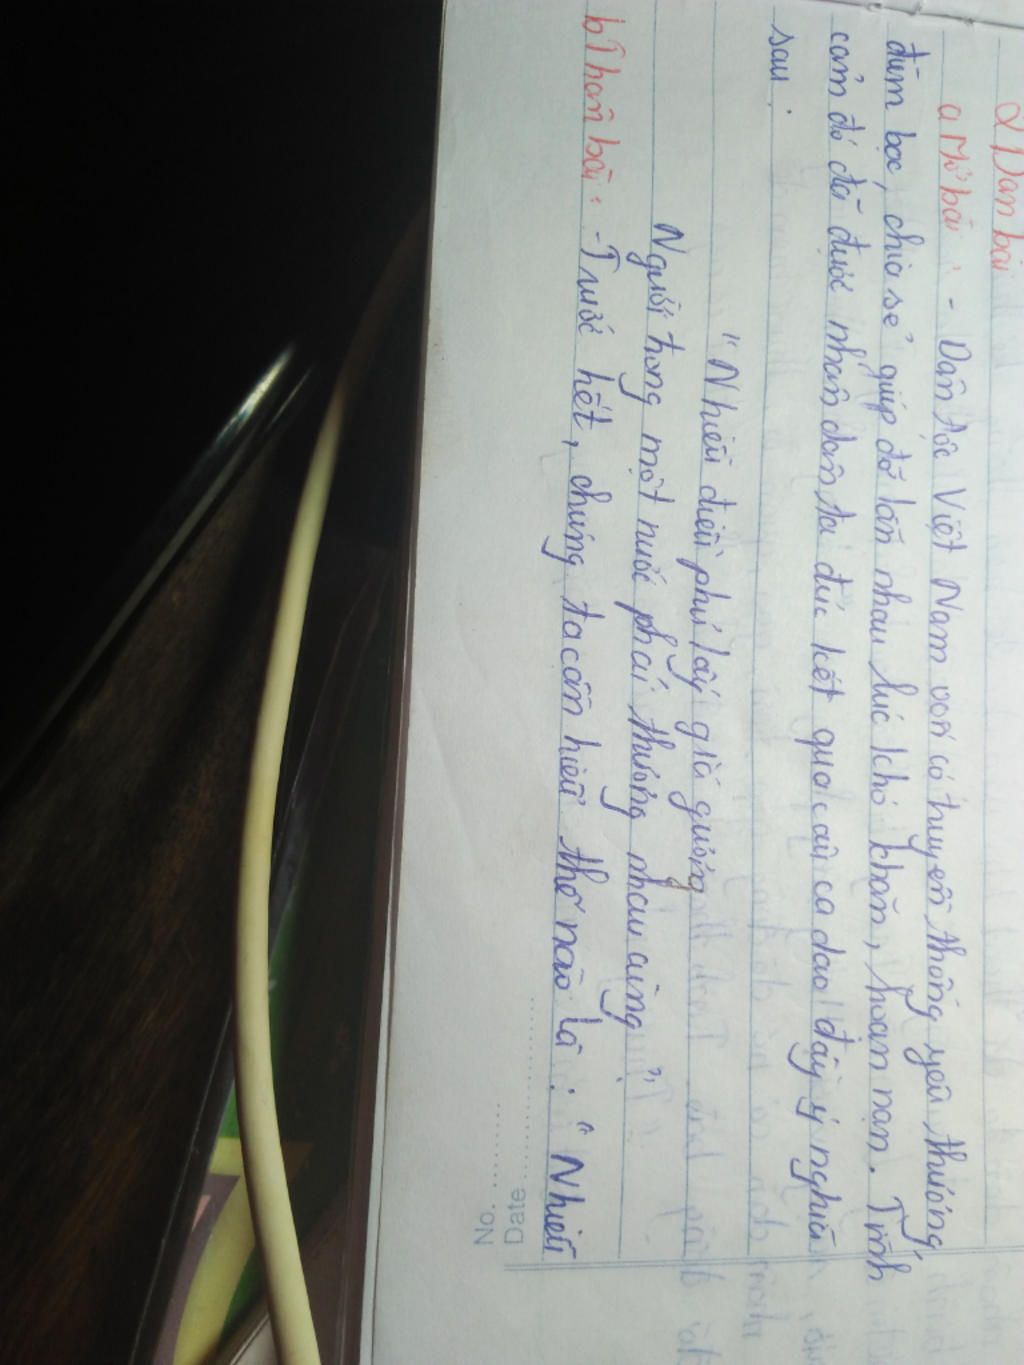 2 Dàn bài
a Mở bài : - Dân tộc Việt Nam vốn có truyền thống yêu thương,
đùm bọc, chia sẻ giúp đỡ lẫn nhau lúc khó khăn, hoạn nạn. Tình
cảm đó đã được nhân dân ta đúc kết qua câu ca dao đầy ý nghĩa
sau :
" Nhiễu điều phủ lấy giá gương
Người trong một nước phải thương nhau cùng "
b Thân bài : - Trước hết, chúng ta cần hiểu thế nào là : " Nhiễu
No. ..........
Date ..........